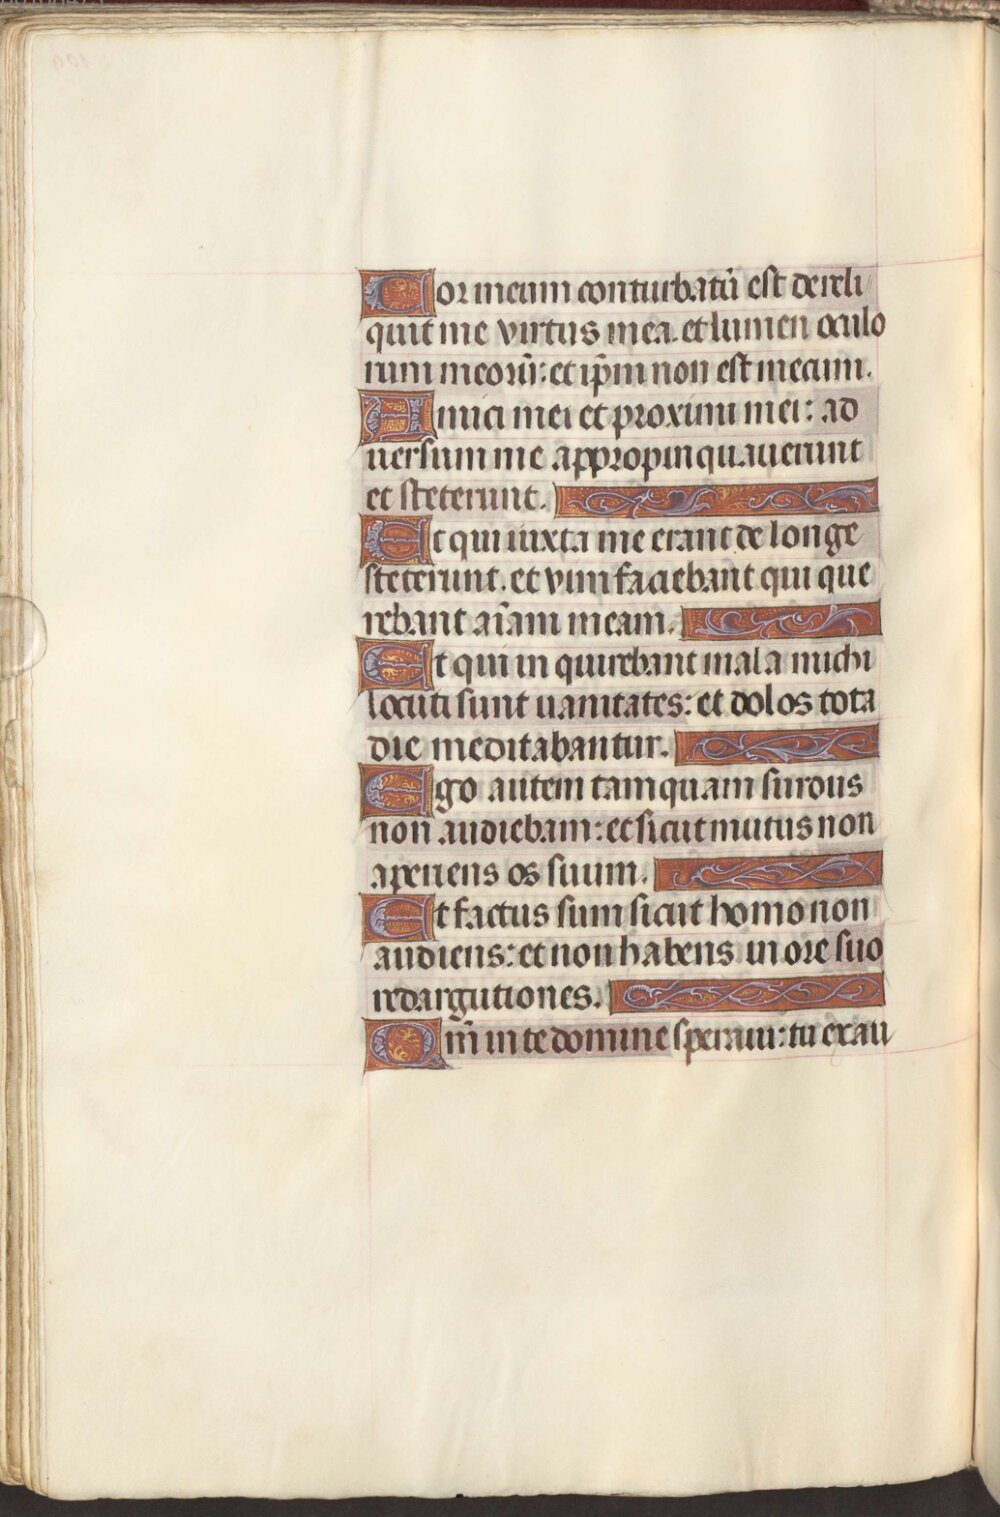 Cor meum conturbatū est dereli
quit me virtus mea. et lumen oculo
rum meorū: et ip̄m non est mecum.
Amici mei et proximi mei: ad
uersum me appropinquauerunt
et steterunt.
Et qui iuxta me erant de longe
steterunt. et vim faciebant qui que
rebant aīam meam.
Et qui in quirebant mala michi
locuti sunt uanitates: et dolos tota
die meditabantur.
Ego autem tamquam surdus
non audiebam: et sicut mutus non
aperiens os suum.
Et factus sum sicut homo non
audiens: et non habens in ore suo
redargutiones.
Qm̄ in te domine speraui: tu exau